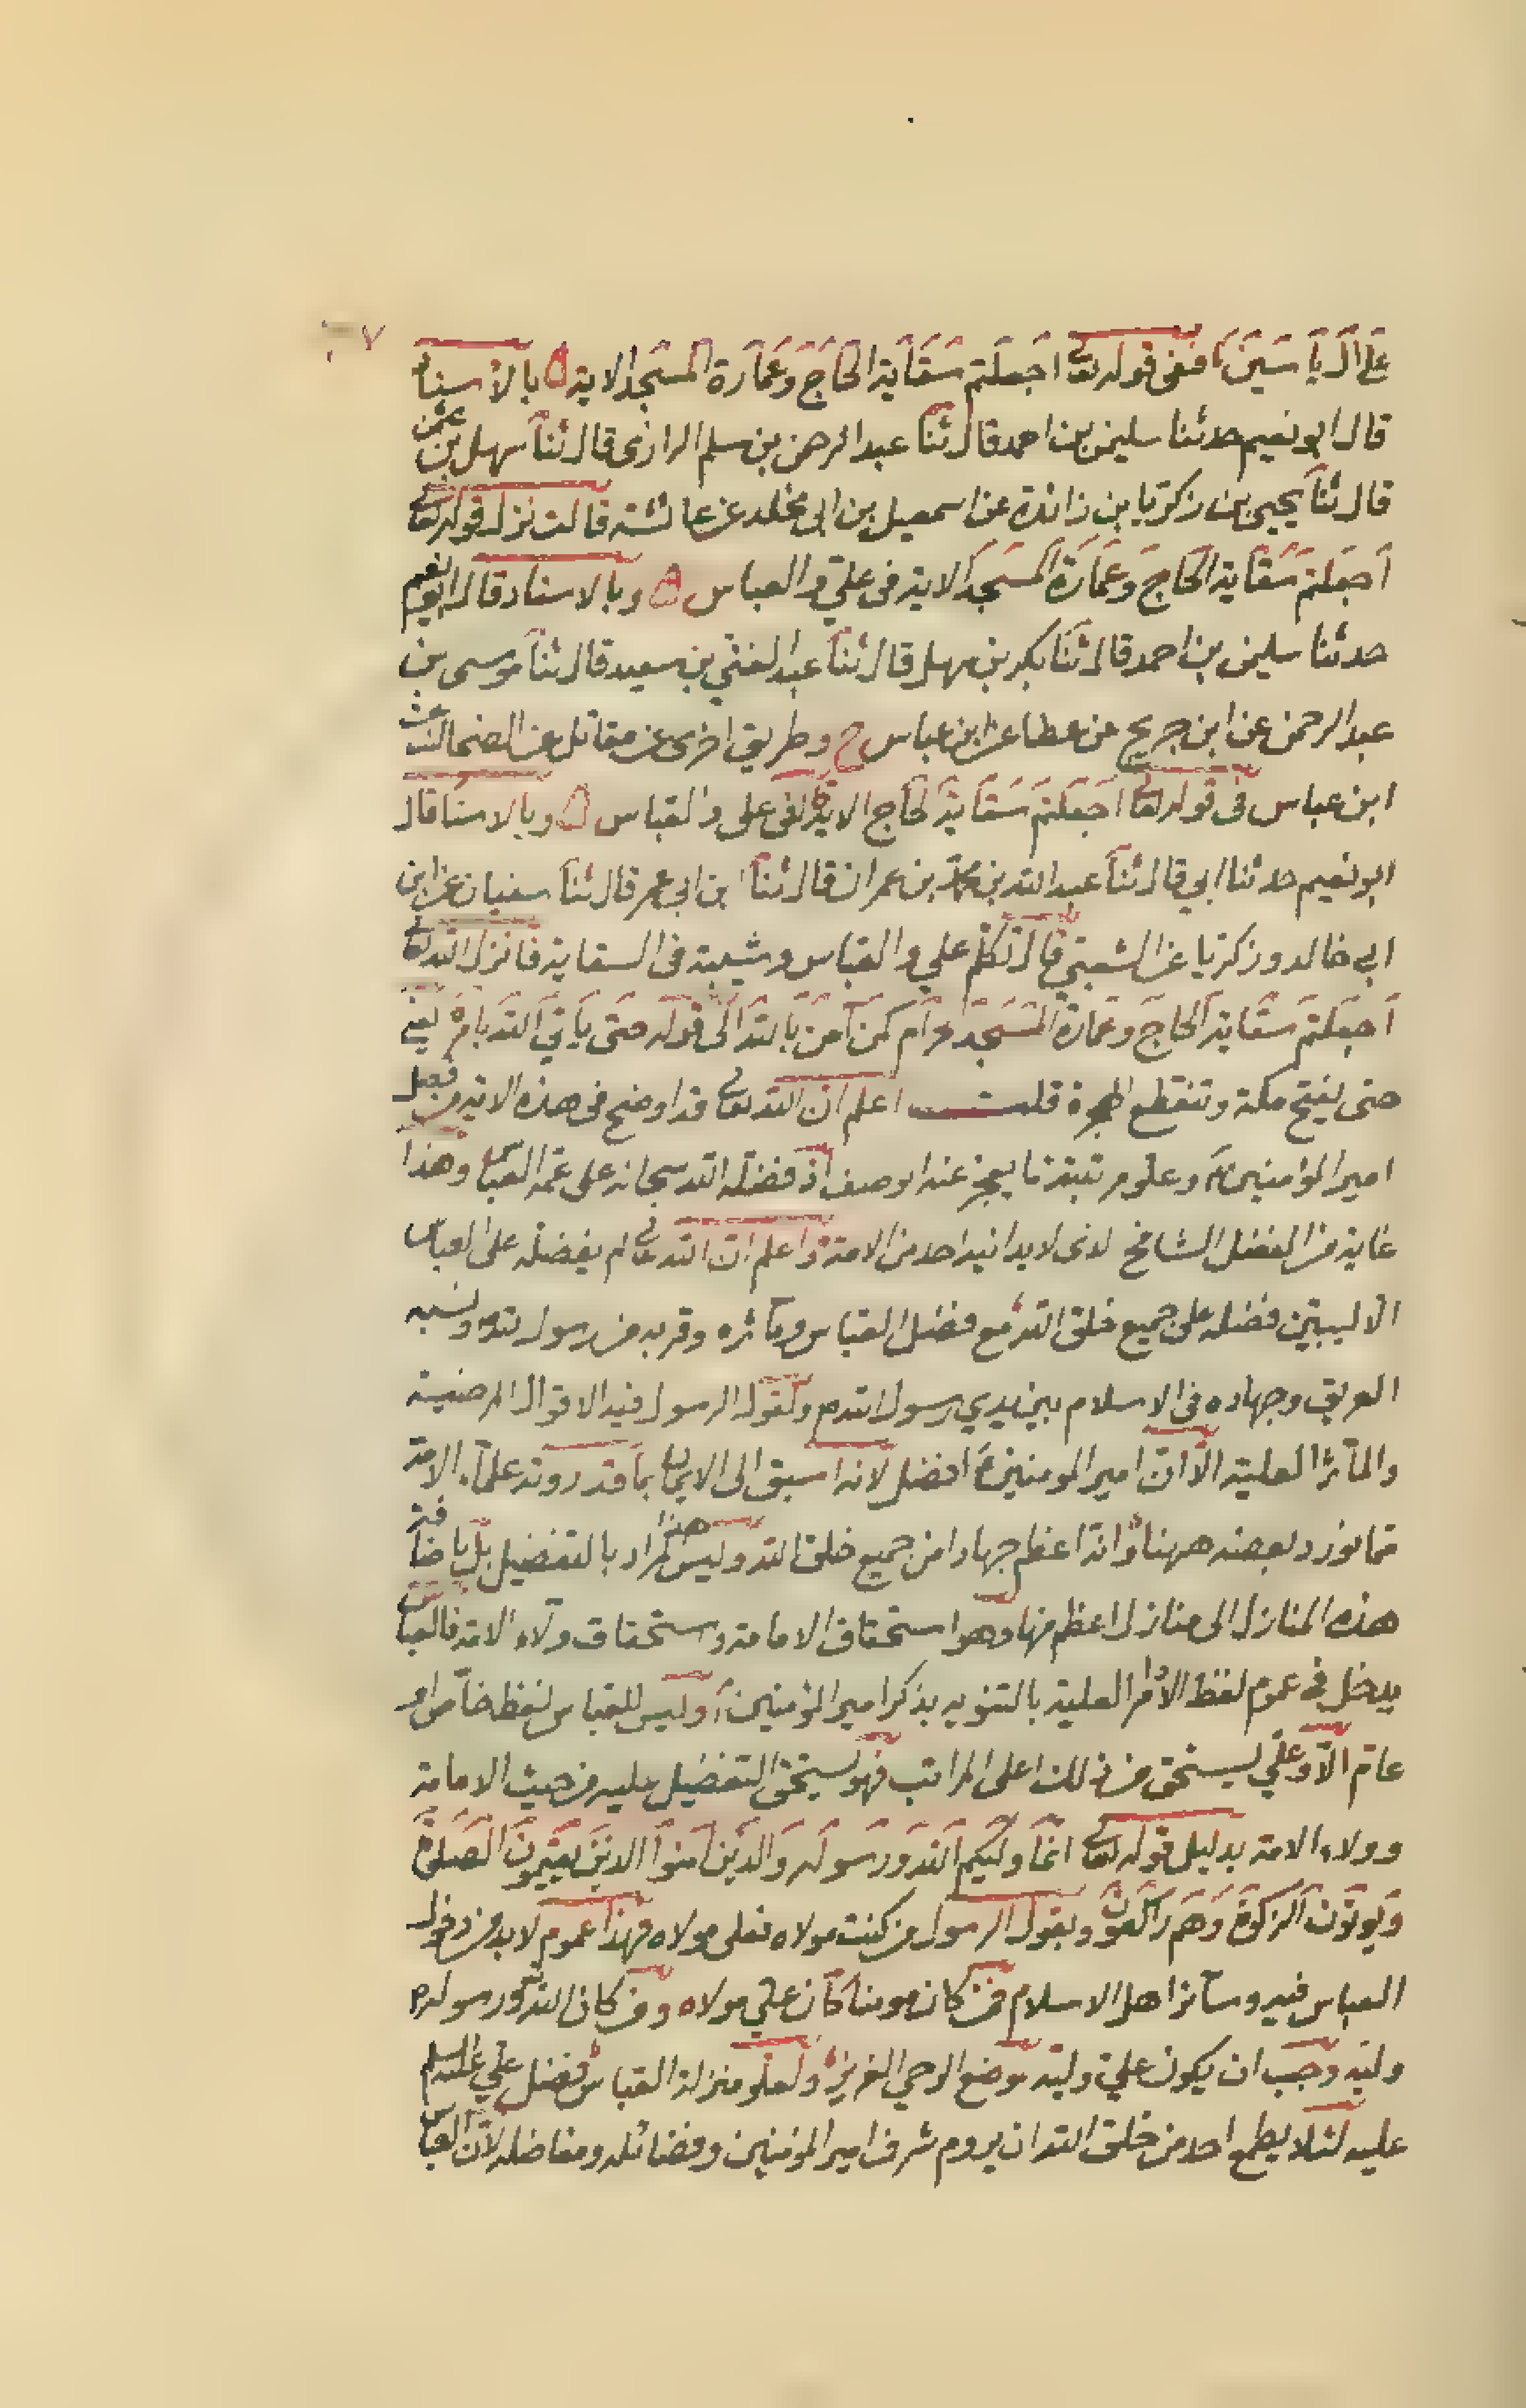 على آل ياسين فصل في قوله تعا اجعلتم سقاية الحاج وعمارة المسجد الاية ه بالاسناد
قال ابو نعيم حدثنا سليمن بن احمد قال ثنا عبد الرحمن بن سلم الرازى قال ثنا سهل بن عثمن
قال ثنا يحيى بن زكريا بن زائدة عن اسمعيل بن ابى مخلد عن عائشه قالت نزل قوله تعالى
اجعلتم سقاية الحاج وعمارة المسجد الاية فى علي والعباس ه وبالاسناد قال ابو نعيم
حدثنا سليمن بن احمد قال ثنا بكر بن سهل قال ثنا عبد الغني بن سعيد قال ثنا موسى بن
عبد الرحمن عن ابن جريح عن عطا عن ابن عباس ح وطريق اخرى عن مقاتل عن الضحاك عن
ابن عباس فى قوله تعا اجعلتم سقاية الحاج الاية فى على والعباس ه وبالاسناد قال
ابو نعيم حدثنا ابي قال ثنا عبد الله بن محمد بن عمران قال ثنا ابن ابى عمر قال ثنا سفيان عن ابن
ابى خالد وزكريا عن الشعبي قال تكلم علي والعباس وشيبة فى السقاية فانزل الله تعالى
اجعلتم سقاية الحاج وعمارة المسجد الحرام كمن آمن بالله الى قوله حتى ياتي الله بامره يعنى
حتى يفتح مكة وتنقطع الهجرة قلت اعلم ان الله تعالى قد اوضح فى هذه الاية من فضل
امير المؤمنين وعلو مرتبته ما يعجز عنه الوصف اذ فضله الله سبحانه على عمه العباس وهذا
غاية من الفضل الشامخ الذى لا يدانيه احد من الامة واعلم ان الله تعالى لم يفضله على العباس
الا ليبين فضله على جميع خلق الله مع فضل العباس ومآثره وقربه من رسول الله ونسبه
العريق وجهاده فى الاسلام بين يدي رسول الله ولقول الرسول فيه الاقوال المرضية
والمآثر العلية الا ان امير المومنين افضل لانه اسبق الى الايمان بما قد روته علماء الامة
مما نورد بعضه ههنا وانه اعظم جهادا من جميع خلق الله وليس هذا المراد بالتفضيل بل باضافة
هذه المنازل الى منازل اعظم منها وهو استحقاق الامامة واستحقاق ولاء الامة فالعباس
يدخل فى عموم لفظ الاوامر العلية بالتنويه بذكر امير المؤمنين وليس للعباس لفظ خاص او
عام الا وعلي يستحق من ذلك اعلى المراتب فهو يستحق التفضيل عليه من حيث الامامة
وولاء الامة بدليل قوله تعالى انما وليكم الله ورسوله والذين آمنوا الذين يقيمون الصلوة
ويوتون الزكوة وهم راكعون وبقول الرسول من كنت مولاه فعلى مولاه فهذا عموم لا بد من دخول
العباس فيه وسائر اهل الاسلام فمن كان مومنا كان علي مولاه ومن كان الله ورسوله
وليه وجب ان يكون علي وليه بموضع الوحي العزيز ولعلو منزلة العباس فضل علي عليه السلم
عليه لئلا يطمع احد من خلق الله ان يروم شرف امير المؤمنين وفضائله ومفاضله لان العباس